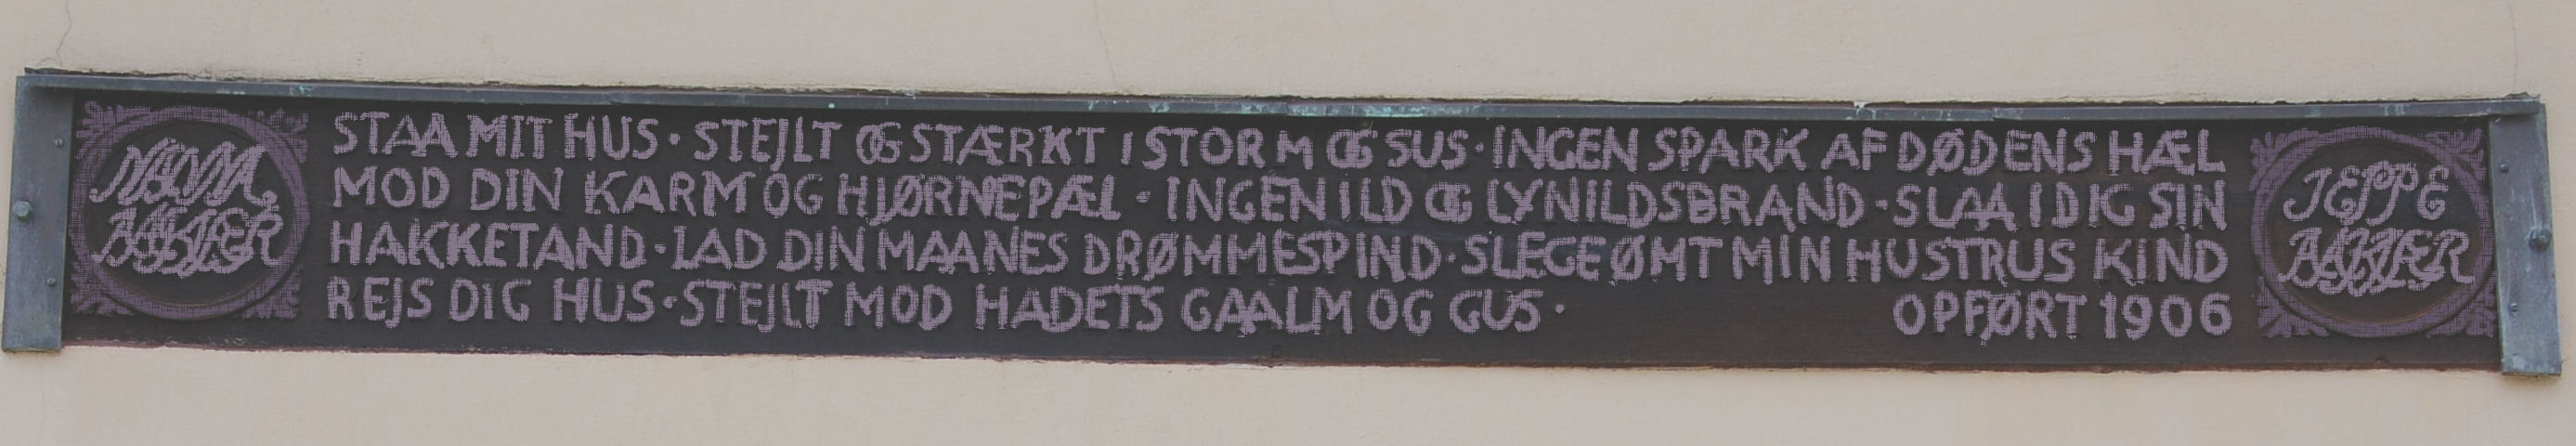 NANNA
AAKJÆR
STAA MIT HUS · STEJLT OG STÆRKT I STORM OG SUS · INGEN SPARK AF DØDENS HÆL
MOD DIN KARM OG HJØRNEPÆL · INGEN ILD OG LYNILDSBRAND · SLAA I DIG SIN
HAKKETAND · LAD DIN MAANES DRØMMESPIND · SLEGE ØMT MIN HUSTRUS KIND
REJS DIG HUS · STEJLT MOD HADETS GAALM OG GUS ·
OPFØRT 1906
JEPPE
AAKJÆR